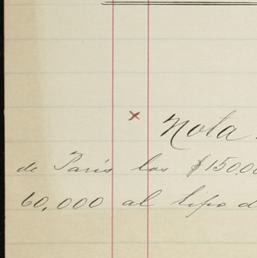 × Nota.
de Paris los $15000
60,000 al tipo d